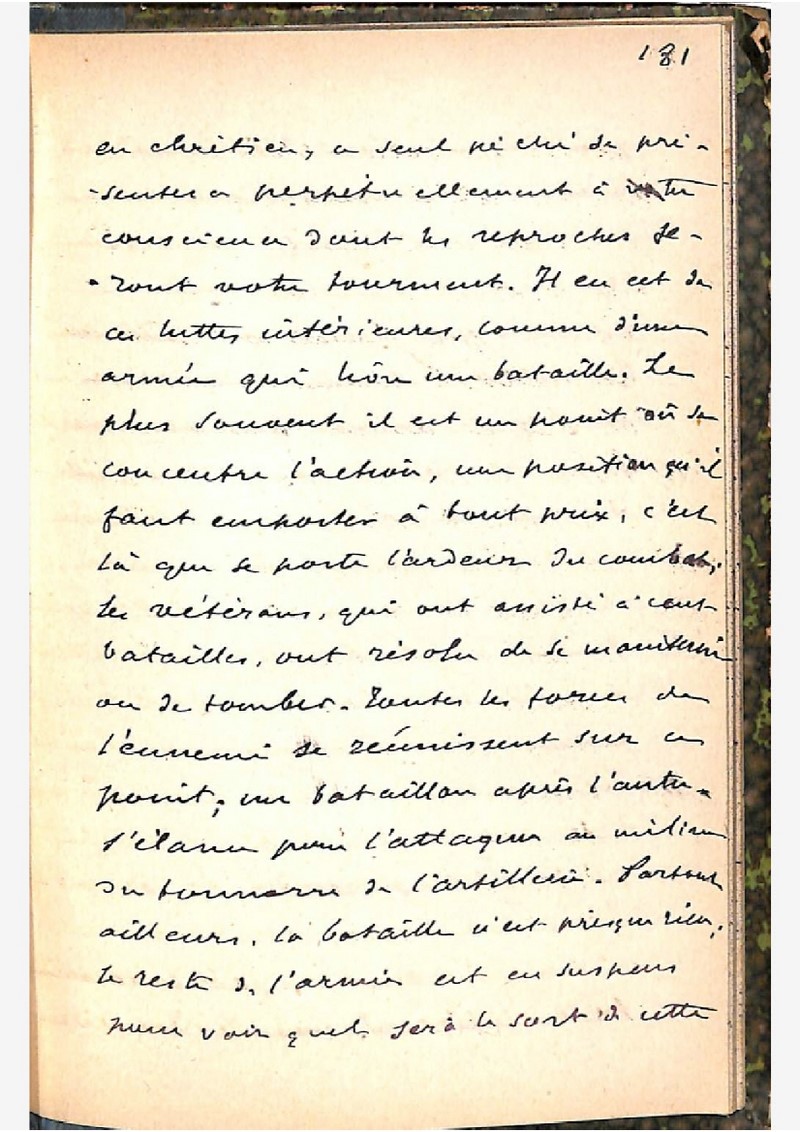 181
en chrétien, ce seul péché se pré-
-sentera perpétuellement à votre
conscience dont les reproches se-
-ront votre tourment. Il en est de
ces luttes intérieures, comme d'une
armée qui livre une bataille. Le
plus souvent il est un point où se
concentre l'action, une position qu'il
faut emporter à tout prix, c'est
là que se porte l'ardeur du combat;
les vétérans, qui ont assisté à cent
batailles, ont résolu de se maintenir
ou de tomber. Toutes les forces de
l'ennemi se réunissent sur ce
point; un bataillon après l'autre
s'élance pour l'attaquer au milieu
du tonnerre de l'artillerie. Partout
ailleurs, la bataille n'est presque rien;
le reste de l'armée est en suspens
pour voir quel sera le sort de cette